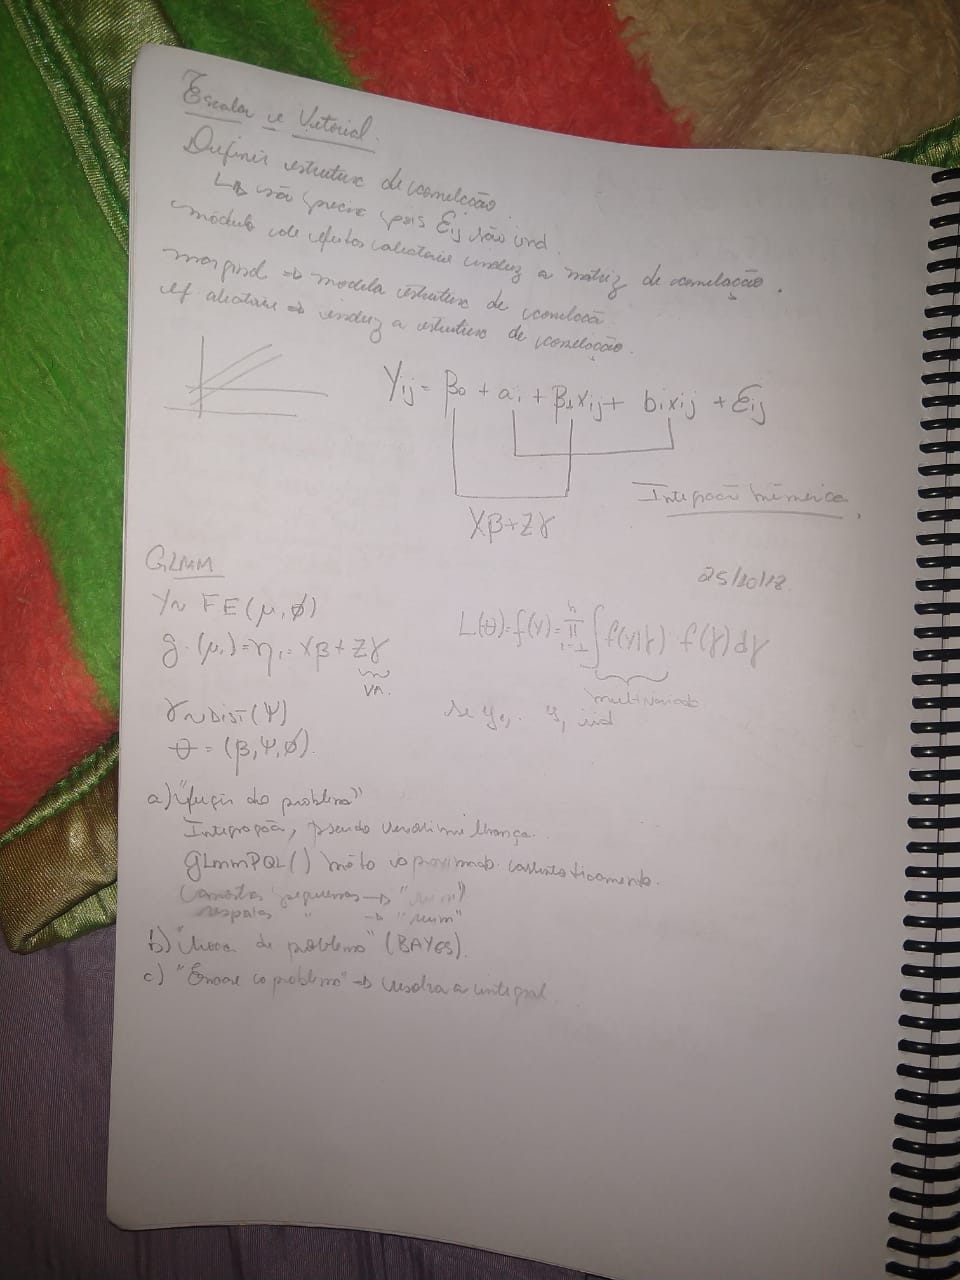 Escalar e Vetorial.
Definir estrutura de correlação.
↳ não precisa pois Eij são ind
modelo de efeitos aleatorios induz a matriz de correlação.
marginal ⇒ modela estrutura de correlação
ef aleatorio ⇒ induz a estrutura de correlação.
Yij = β0 + ai + β1xij + bixij + Eij
Xβ+Zγ
Integração numérica.
25/10/18
GLMM
Y~ FE(μ,φ)
g(μi)=ηi=Xβ+Zγ
VA.
γ~DIST(Ψ)
θ = (β,Ψ,φ).
L(θ)=f(y)=∏ i=1 n ∫f(y|γ) f(γ)dγ
multivariada
se y1, ind
a) "fugir do problema"
Integração, pseudo verossimilhança.
glmmPQL()
amostras pequenas → "ruim"
" → "ruim"
b) "troca de problema" (BAYES).
c) "Encare o problema" → resolva a integral